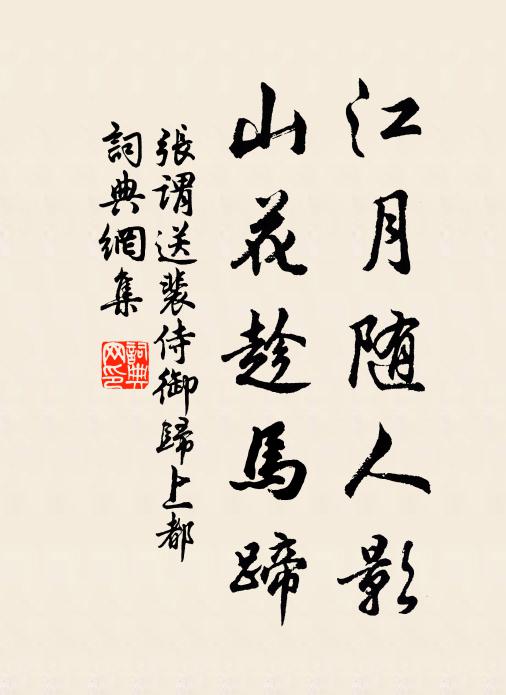 江月随人影
山花趁馬蹄
張謂送裴侍御歸上都
詞典網集
詞典網印